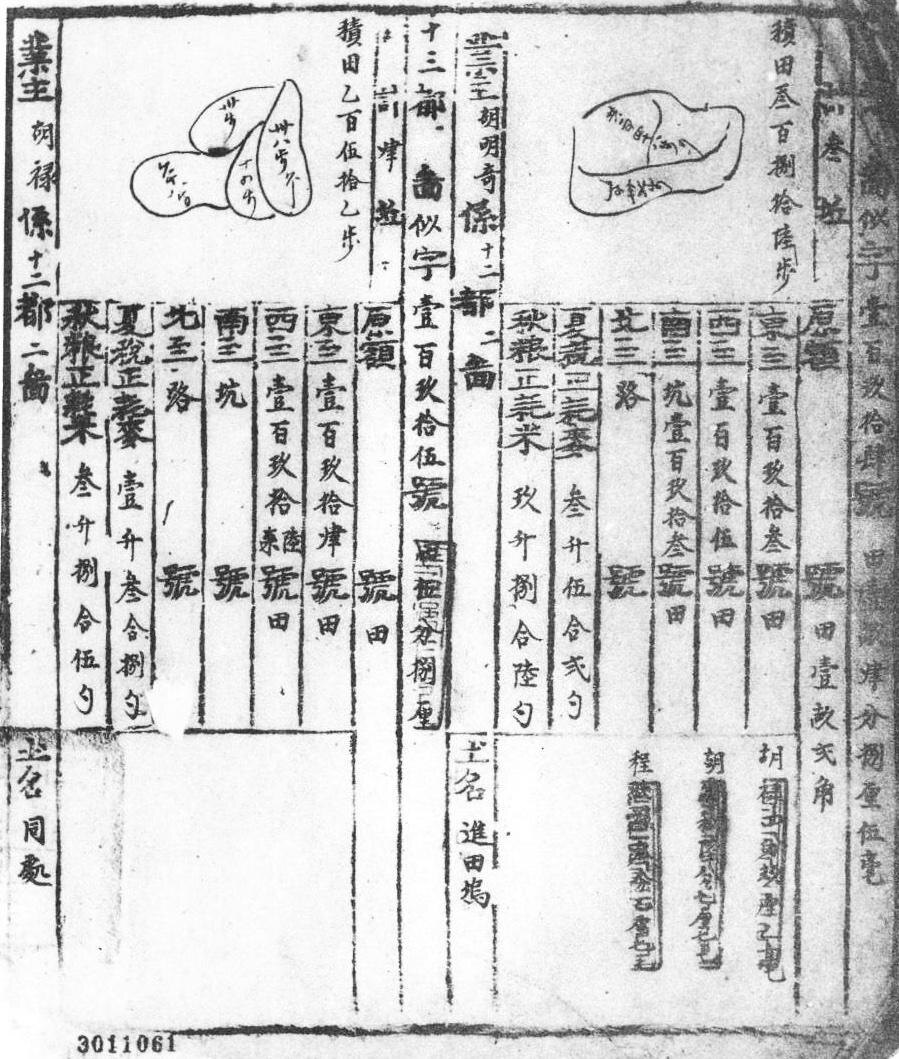 啚似字壹百玖拾肆號田
肆分捌厘伍毫
計叁坵
積田叁百捌拾陸步
原額
號
田壹畝弍角
東至
壹百玖拾叁
號
田
西至
壹百玖拾伍
號
田
南至
坑壹百玖拾叁
號
田
北至
路
號
夏稅正耗麥
叁升伍合弍勺
秋粮正耗米
玖升捌合陸勺
胡
胡
程
業主胡明奇係十二都二啚
土名進田塢
十三都
啚似字壹百玖拾伍號
伍分捌厘
計肆坵
積田乙百伍拾乙步
原額
號
田
東至
壹百玖拾肆
號
田
西至
壹百玖拾陸
柒
號
田
南至
坑
號
北至
路
號
夏稅正耗麥
壹升叁合捌勺
秋粮正耗米
叁升捌合伍勺
業主胡祿係十二都二啚
土名同處
3011061